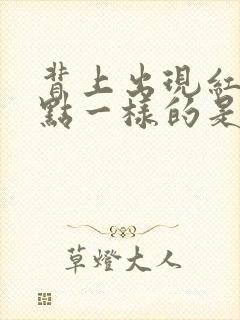 背上出現紅
點一樣的是
草燈大人